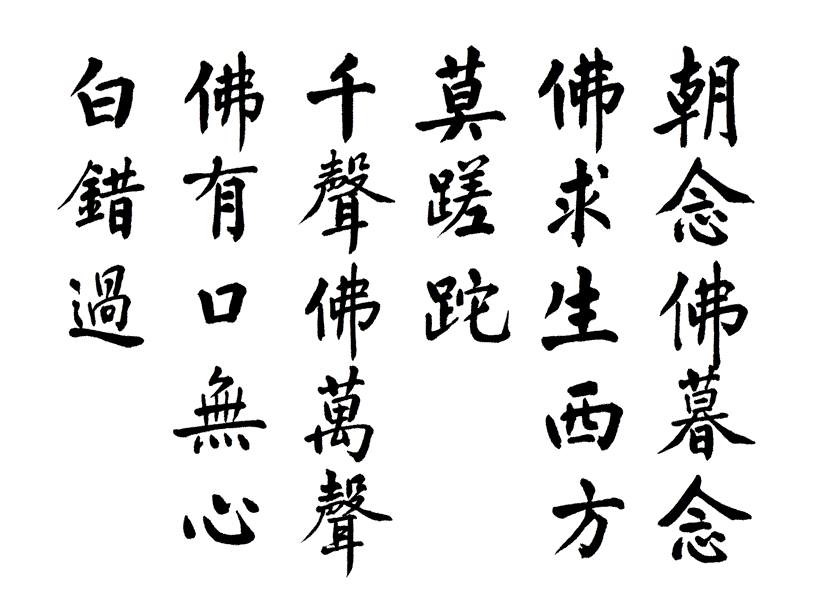 朝念佛暮念
佛求生西方
莫蹉跎
千聲佛萬聲
佛有口無心
白錯過